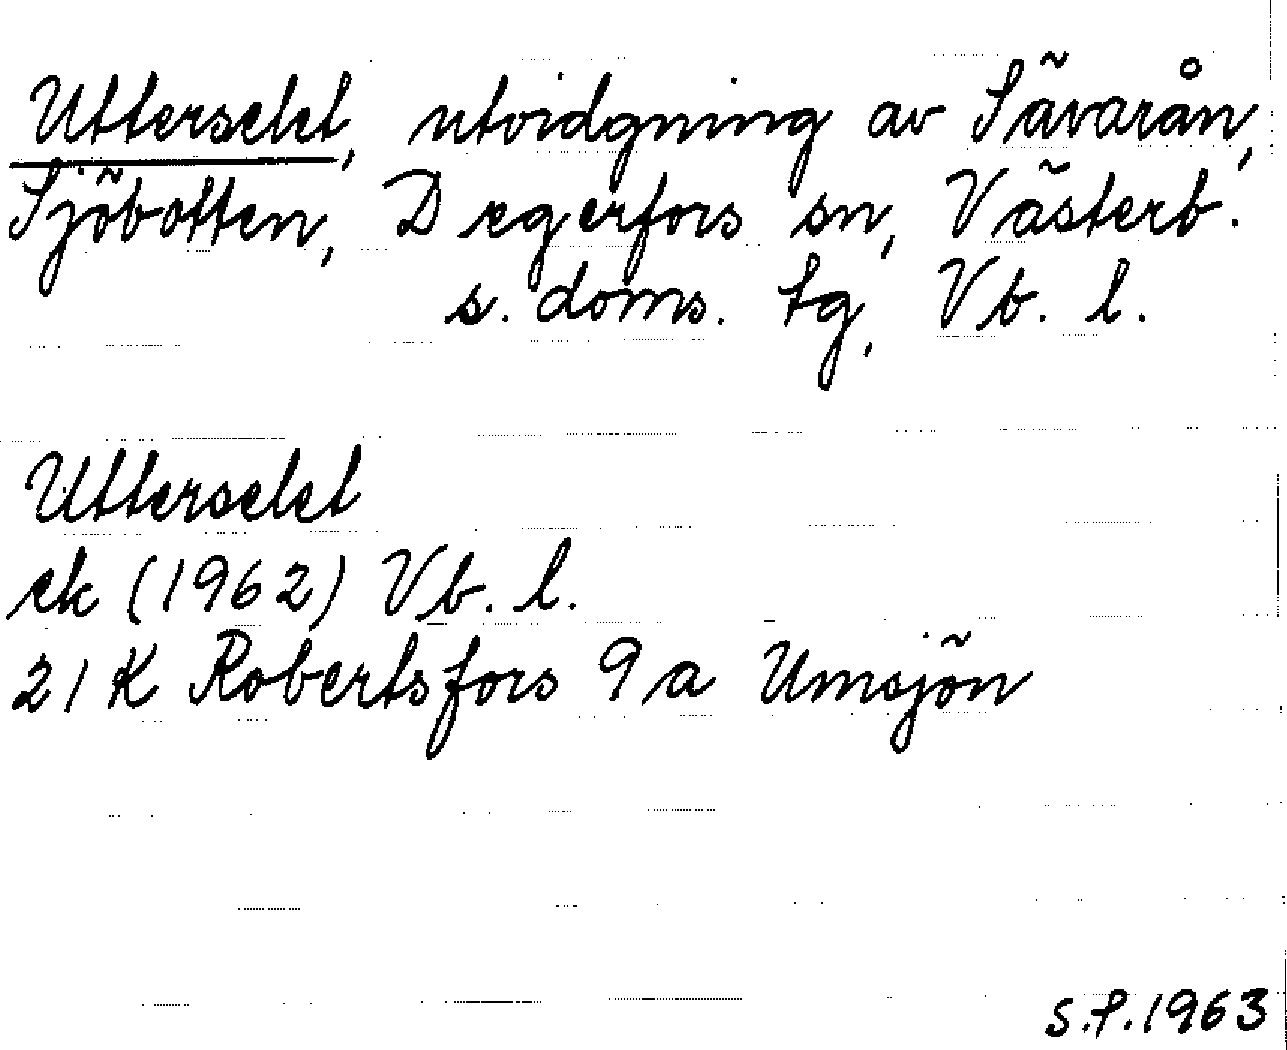 Utterselet, utvidgning av Sävarån,
Sjöbotten, Degerfors sn, Västerb.
s. doms. tg, Vb. l.
Utterselet
ek (1962) Vb. l.
21 K Robertsfors 9 a Umsjön
S.P. 1963